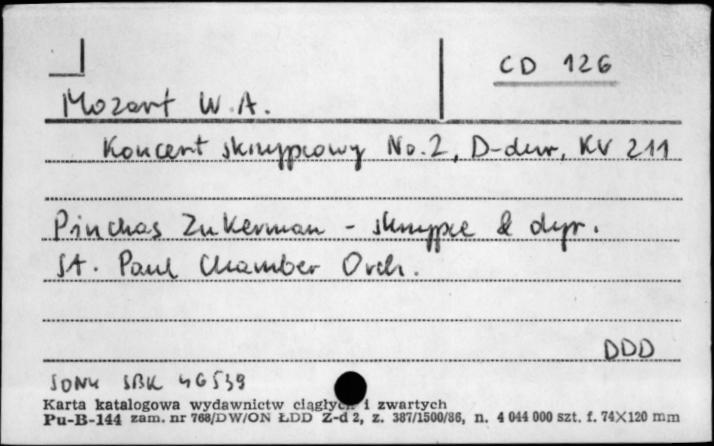 CD 126
Mozart W. A.
Koncert skrzypcowy No. 2, D-dur, KV 211
Pinchas Zukerman - skrzypce & dyr.
St. Paul Chamber Orch.
DDD
SONY SBK 46539
Karta katalogowa wydawnictw ciągłych i zwartych
Pu-B-144 zam. nr 768/DW/ON ŁDD Z-d 2, z. 387/1500/86, n. 4 044 000 szt. f. 74×120 mm